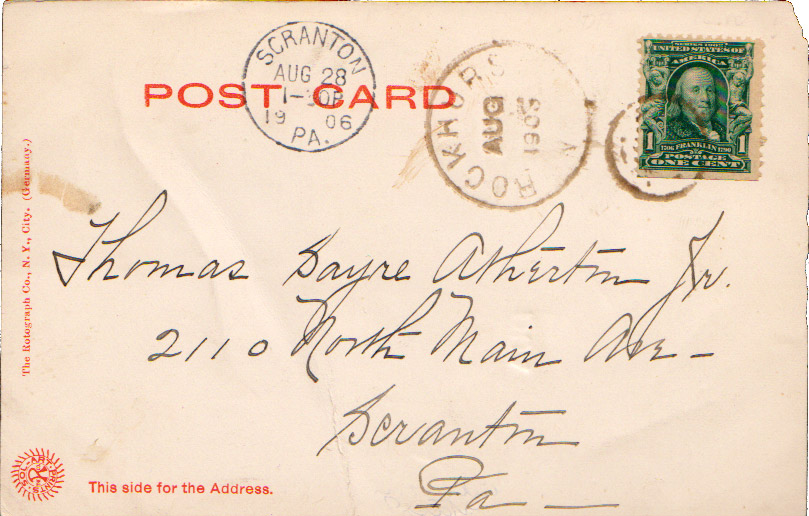 SCRANTON
AUG 28
1906
PA.
AUG
1905
SERIES 1902
UNITED STATES OF
AMERICA
1706 FRANKLIN 1790
1 POSTAGE 1
ONE CENT
POST CARD
Thomas Sayre Atherton Jr.
2110 North Main Ave -
Scranton
Pa -
The Rotograph Co., N. Y., City. (Germany.)
This side for the Address.